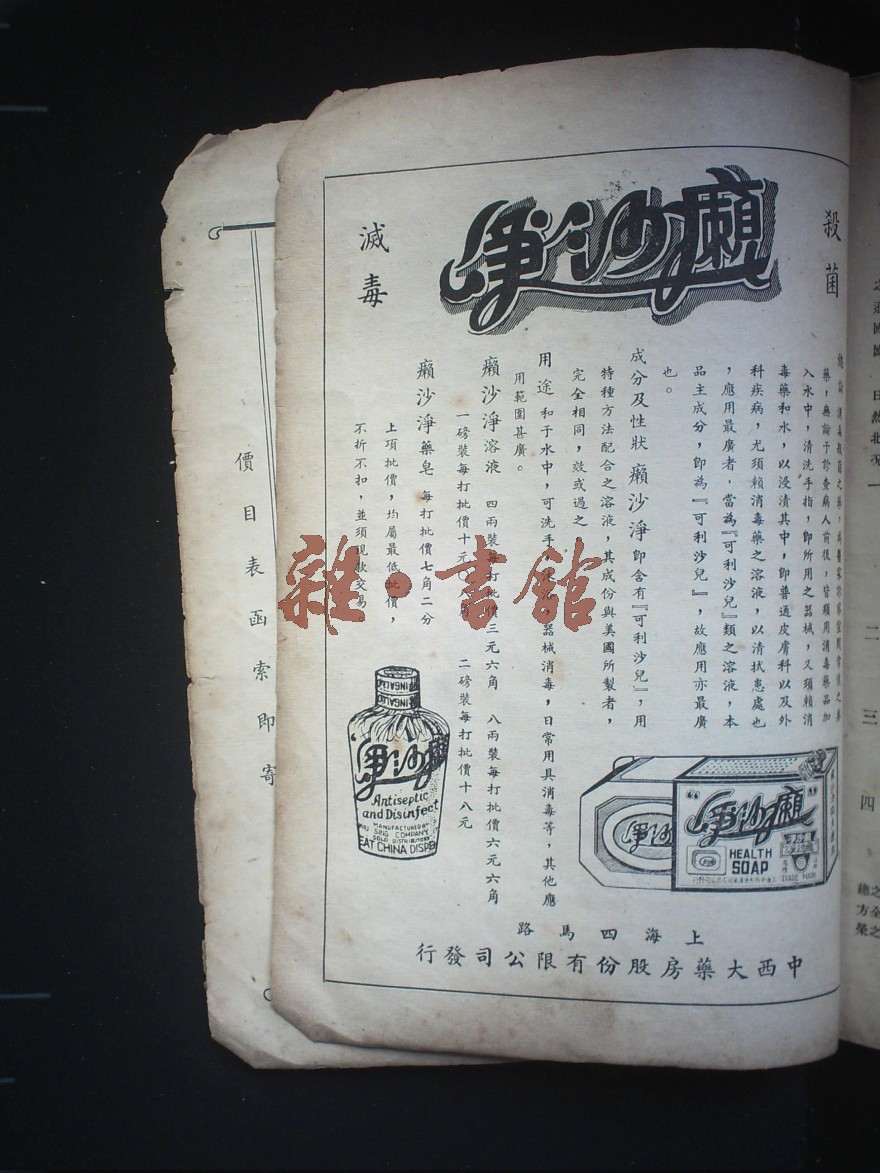 癩沙淨
殺菌
滅毒
總論 消毒殺菌之藥，為醫家診察室間常備之要
藥，無論于診查病人前後，皆須用消毒藥品加
入水中，清洗手指，即所用之器械，又須賴消
毒藥和水，以浸清其中，即普通皮膚科以及外
科疾病，尤須賴消毒藥之溶液，以清拭患處也
，應用最廣者，當為『可利沙兒』類之溶液，本
品主成分，即為『可利沙兒』，故應用亦最廣
也。
成分及性狀 癩沙淨 即含有『可利沙兒』，用
特種方法配合之溶液，其成份與美國所製者，
完全相同，效或過之
用途 和于水中，可洗手，器械消毒，日常用具消毒等，其他應
用範圍甚廣。
癩沙淨溶液 四兩裝每打批價三元六角 八兩裝每打批價六元六角
一磅裝每打批價十元 二磅裝每打批價十八元
癩沙淨藥皂 每打批價七角二分
上項批價，均屬最低批價，
不折不扣，並須現款交易
淨沙
Antiseptic
and Disinfect
MANUFACTURED BY
SING COMPANY
SOLE DISTRIBUTORS
EAT CHINA DISPE
淨沙
"淨沙癩"
HEALTH
SOAP
TRADE MARK
上海四馬路
中西大藥房股份有限公司發行
價目表函索即寄
雜·書館
二
三
四